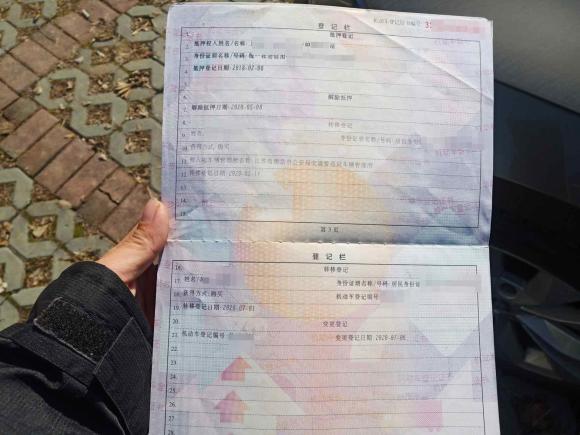 登记栏
机动车登记证书编号: 3
1 抵押登记
2 抵押权人姓名/名称
3 身份证明名称/号码:统一社会信用
4 抵押登记日期:2018-02-06
5
6 解除抵押
7 解除抵押日期:2020-05-08
8 转移登记
9 姓名 身份证明名称/号码:居民身份证
10 获得方式:购买
11
12 转移登记日期:2020-05-11
13
14
15
第 3 页
登记栏
16 转移登记
17 姓名/名 身份证明名称/号码:居民身份证
18 获得方式:购买 机动车登记编号
19 转移登记日期:2020-07-01
20 变更登记
21 机动车登记编号 变更登记日期:2020-07-06
22
23
24
25
26
27
28